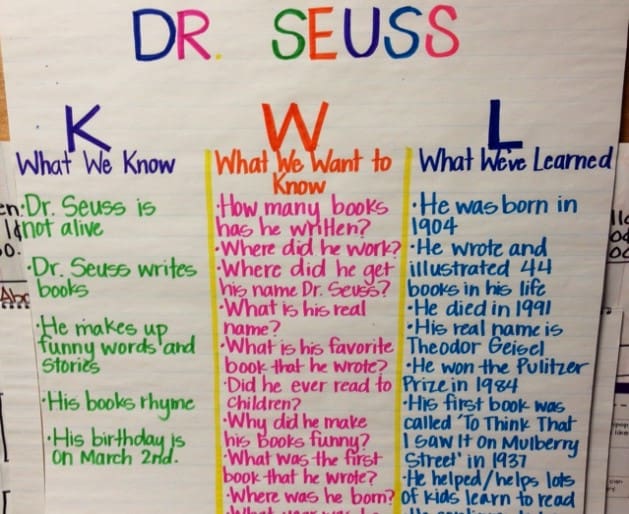 DR. SEUSS
K
What We Know
·Dr. Seuss is
not alive
·Dr. Seuss writes
books
·He makes up
funny words and
stories
·His books rhyme
·His birthday is
on March 2nd.
W
What We Want to
Know
·How many books
has he written?
·Where did he work?
·Where did he get
his name Dr. Seuss?
·What is his real
name?
·What is his favorite
book that he wrote?
·Did he ever read to
children?
·Why did he make
his books funny?
·What was the first
book that he wrote?
·Where was he born?
L
What We've Learned
·He was born in
1904
·He wrote and
illustrated 44
books in his life
·He died in 1991
·His real name is
Theodor Geisel
·He won the Pulitzer
Prize in 1984
·His first book was
called "To Think That
I Saw It on Mulberry
Street" in 1937
·He helped/helps lots
of kids learn to read